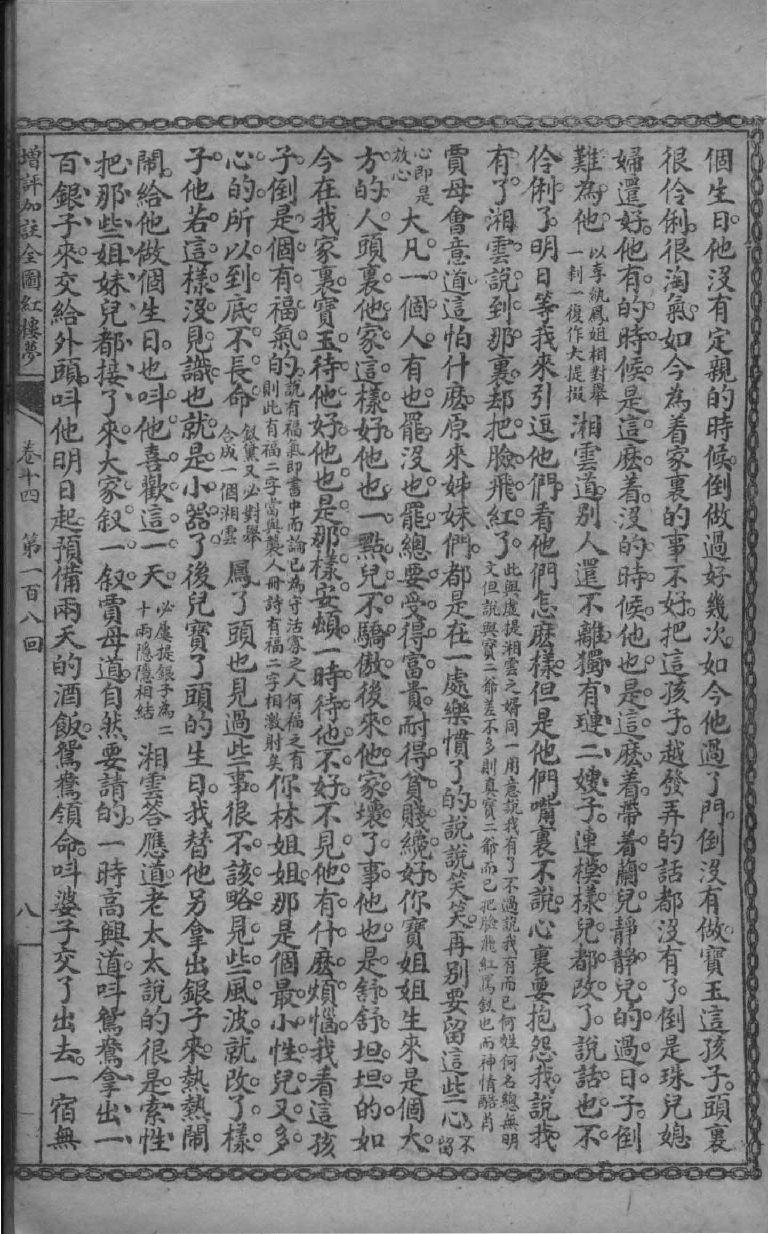 個生日他沒有定親的時候倒做過好幾次如今他過了門倒沒有做寶玉這孩子頭裏
很伶俐很淘氣如今為着家裏的事不好把這孩子越發弄的話都沒有了倒是珠兒媳
婦還好他有的時候是這麽着沒的時候他也是這麽着帶着蘭兒靜靜兒的過日子倒
難為他以李紈鳳姐相對舉一判一復作大提掇湘雲道別人還不離獨有璉二嫂子連模樣兒都改了說話也不
伶俐了明日等我來引逗他們看他們怎麽樣但是他們嘴裏不說心裏要抱怨我說我
有了湘雲說到那裏却把臉飛紅了此與虛提湘雲之婿同一用意說我有了不過說我有而已何姓何名總無明文但說與寶二爺差不多則真寶二爺而已把臉飛紅罵釵也而神情酷肖
賈母會意道這怕什麽原來姊妹們都是在一處樂慣了的說說笑笑再別要留這些心不留
心即是放心大凡一個人有也罷沒也罷總要受得富貴耐得貧賤纔好你寶姐姐生來是個大
方的人頭裏他家這樣好他也一點兒不驕傲後來他家壞了事他也是舒舒坦坦的如
今在我家裏寶玉待他好他也是那樣安頓一時待他不好不見他有什麽煩惱我看這孩
子倒是個有福氣的說有福氣即書中而論已為守活寡之人何福之有則此有福二字當與襲人冊詩有福二字相激射矣你林姐姐那是個最小性兒又多
心的所以到底不長命釵黛又必對舉合成一個湘雲鳳丫頭也見過些事很不該略見些風波就改了樣
子他若這樣沒見識也就是小器了後兒寶丫頭的生日我替他另拿出銀子來熱熱鬧
鬧給他做個生日也叫他喜歡這一天必屢提銀子為二十兩隱隱相結湘雲答應道老太太說的很是索性
把那些姐妹兒都接了來大家叙一叙賈母道自然要請的一時高興道叫鴛鴦拿出一
百銀子來交給外頭叫他明日起預備兩天的酒飯鴛鴦領命叫婆子交了出去一宿無
增評加註全圖紅樓夢 卷十四 第一百八回 八